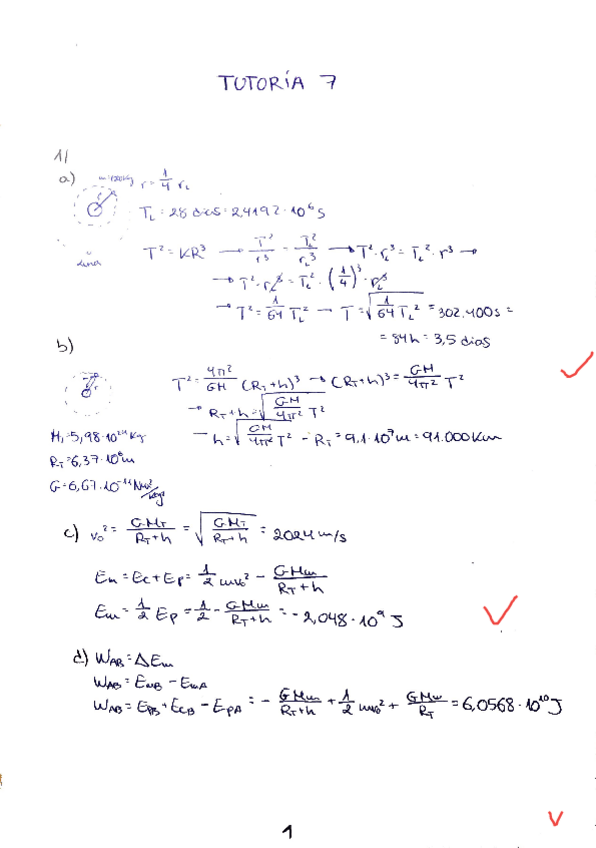 TUTORÍA 7
1/
a) m=1000kg r = 1/4 r_L
T_L = 28 días = 2'4192·10⁶ s
Luna T² = KR³ → T²/r³ = T_L²/r_L³ → T²·r_L³ = T_L²·r³ →
→ T²·r_L³ = T_L²·(1/4)³·r_L³
→ T² = 1/64 T_L² → T = √(1/64 T_L²) = 302.400 s =
= 84h = 3,5 días
b)
T² = 4π²/GM (R_T+h)³ → (R_T+h)³ = GM/4π² T²
→ R_T+h = √(GM/4π² T²)
M_T = 5,98·10²⁴ Kg → h = √(GM/4π² T²) - R_T = 9,1·10⁷ m = 91.000 Km
R_T = 6,37·10⁶ m
G = 6,67·10⁻¹¹ Nm²/kg²
c) v₀² = GM_T/R_T+h = √(GM_T/R_T+h) = 2024 m/s
Em = Ec + Ep = 1/2 mv₀² - GMm/R_T+h
Em = 1/2 Ep = 1/2 · - GMm/R_T+h = - 2,048·10⁹ J
d) W_AB = ΔEm
W_AB = E_mB - E_mA
W_AB = E_pB + E_cB - E_pA = - GMm/R_T+h + 1/2 mv₀² + GMm/R_T = 6,0568·10¹⁰ J
1